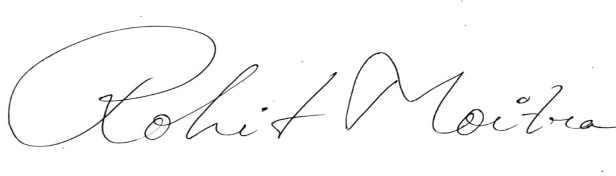 Rohit Moitra